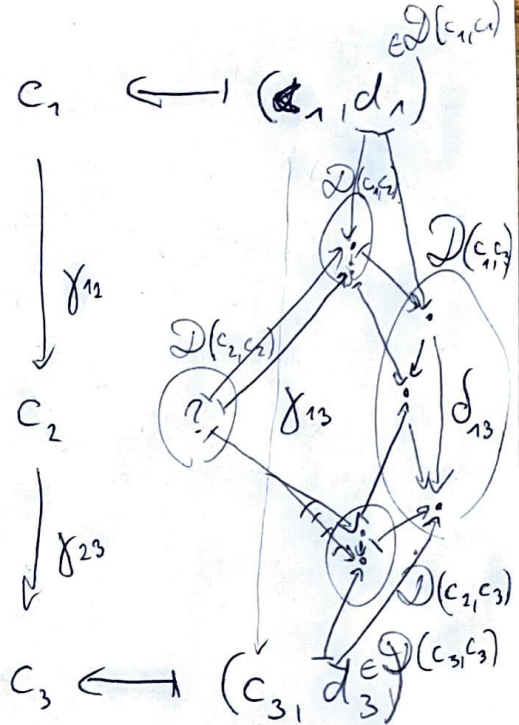 ∈𝒟(c₁,c₁)
C₁ ⟻ (c₁, d₁)
𝒟(c₁,c₂)
𝒟(c₁,c₃)
γ₁₂
𝒟(c₂,c₂)
C₂ ? γ₁₃ δ₁₃
γ₂₃
𝒟(c₂,c₃)
∈𝒟(c₃,c₃)
C₃ ⟻ (c₃, d₃)